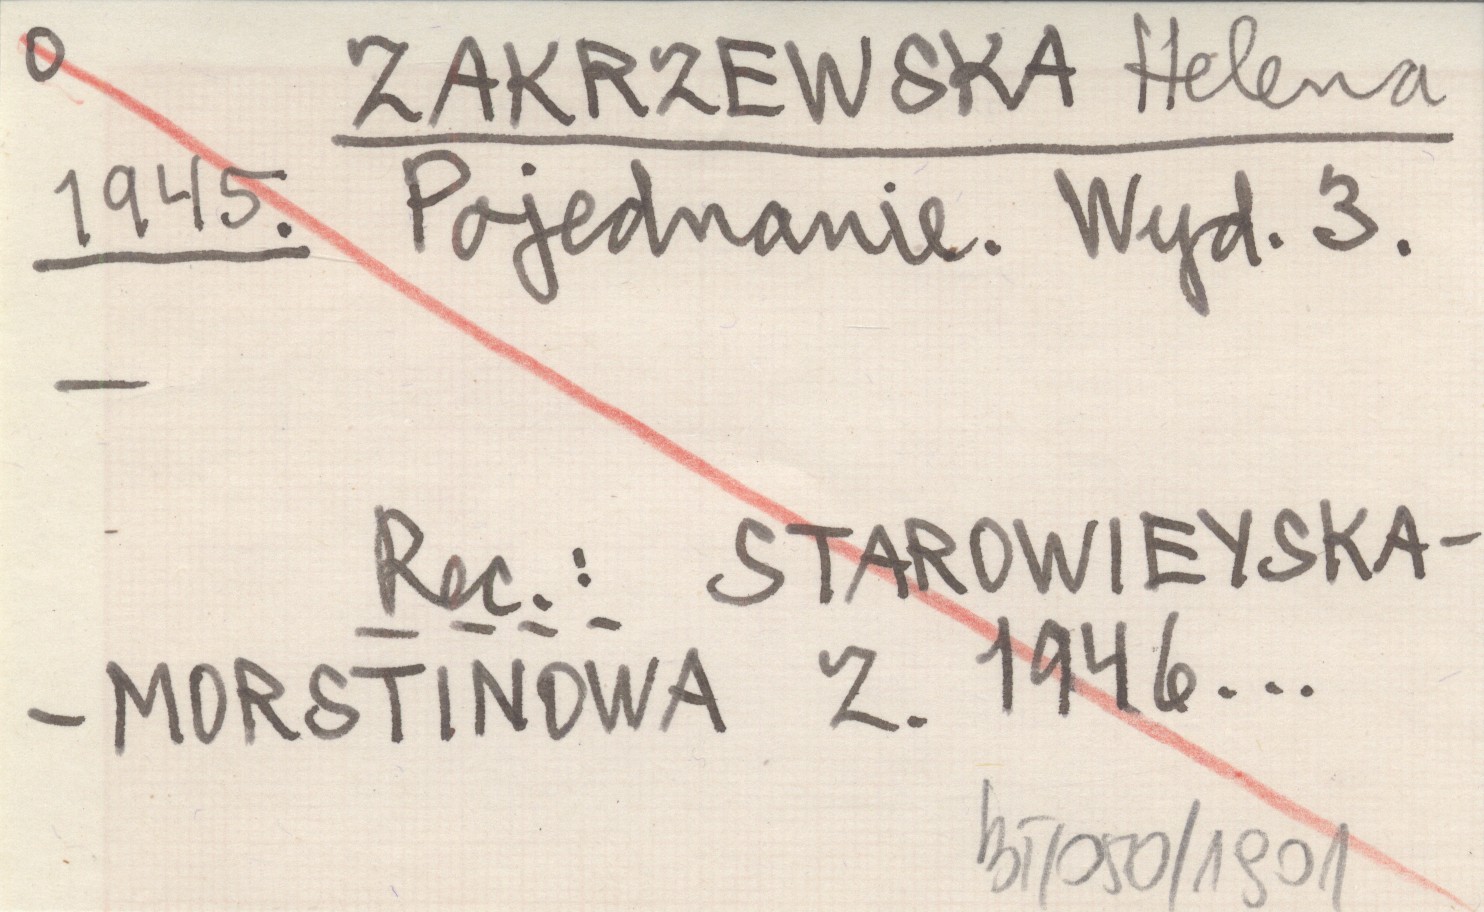 0 ZAKRZEWSKA Helena
1945. Pojednanie. Wyd. 3.
—
Rec.: STAROWIEYSKA-
-MORSTINOWA Z. 1946...
BI/050/1901